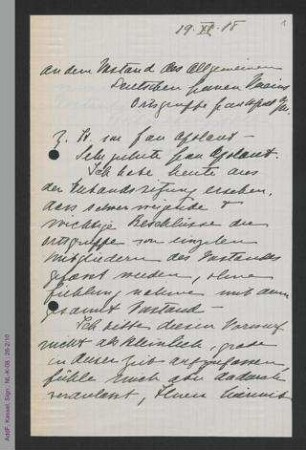 19. XII. 18
1
an den Vorstand des Allgemeinen
Deutschen Frauen Vereins
Ortsgruppe Frankfurt
z. H. von Frau Apolant –
Sehr geehrte Frau Apolant.
Ich habe heute aus
der Vorstandssitzung ersehen,
dass schwerwiegende &
wichtige Beschlüsse der
Ortsgruppe von einzelnen
Mitgliedern des Vorstandes
gefasst werden, ohne
Fühlung nahme mit dem
gesamt Vorstand –
Ich bitte diesen Vorwurf
nicht als kleinlich, grade
in dieser Zeit aufzufassen,
fühle mich aber dadurch
veranlasst, Ihnen hiermit
AddF, Kassel, Sign.: NL-K-08 ; 26-2/10